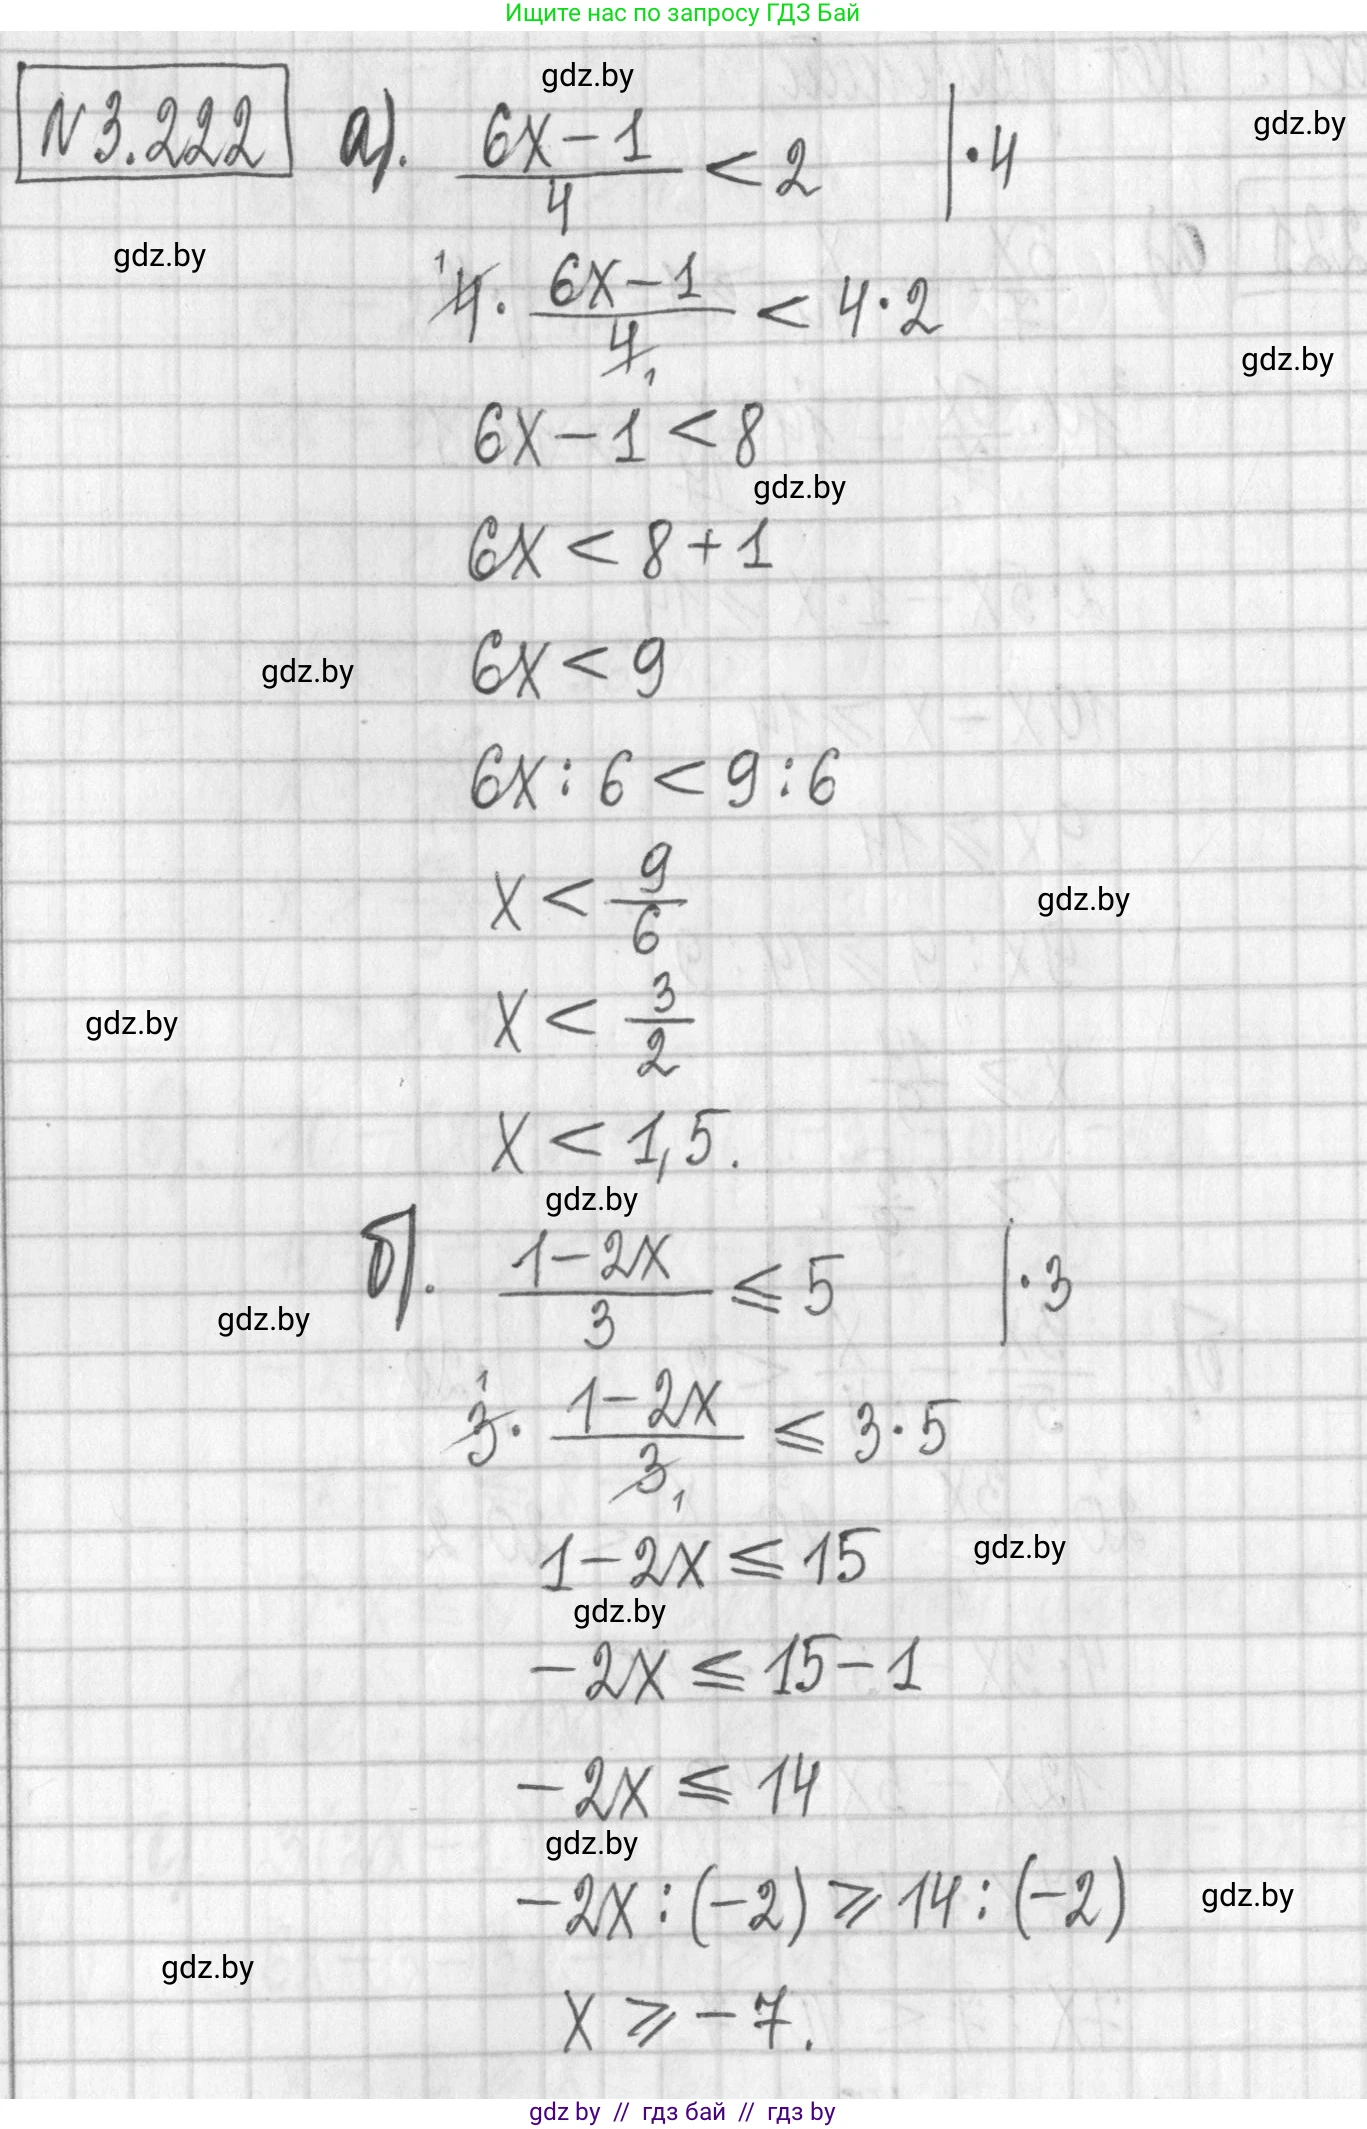 Ищите нас по запросу ГДЗ Бай
gdz.by
gdz.by
N 3.222 а). (6x-1)/4 < 2 | ·4
gdz.by
4 · (6x-1)/4 < 4·2
1 1
gdz.by
6x-1 < 8
gdz.by
6x < 8+1
6x < 9
gdz.by
6x:6 < 9:6
x < 9/6
gdz.by
x < 3/2
gdz.by
x < 1,5.
gdz.by
б). (1-2x)/3 ⩽ 5 | ·3
gdz.by
3 · (1-2x)/3 ⩽ 3·5
1 1
1-2x ⩽ 15
gdz.by
gdz.by
-2x ⩽ 15-1
-2x ⩽ 14
gdz.by
-2x:(-2) ⩾ 14:(-2)
gdz.by
gdz.by
x ⩾ -7.
gdz by // гдз бай // гдз by